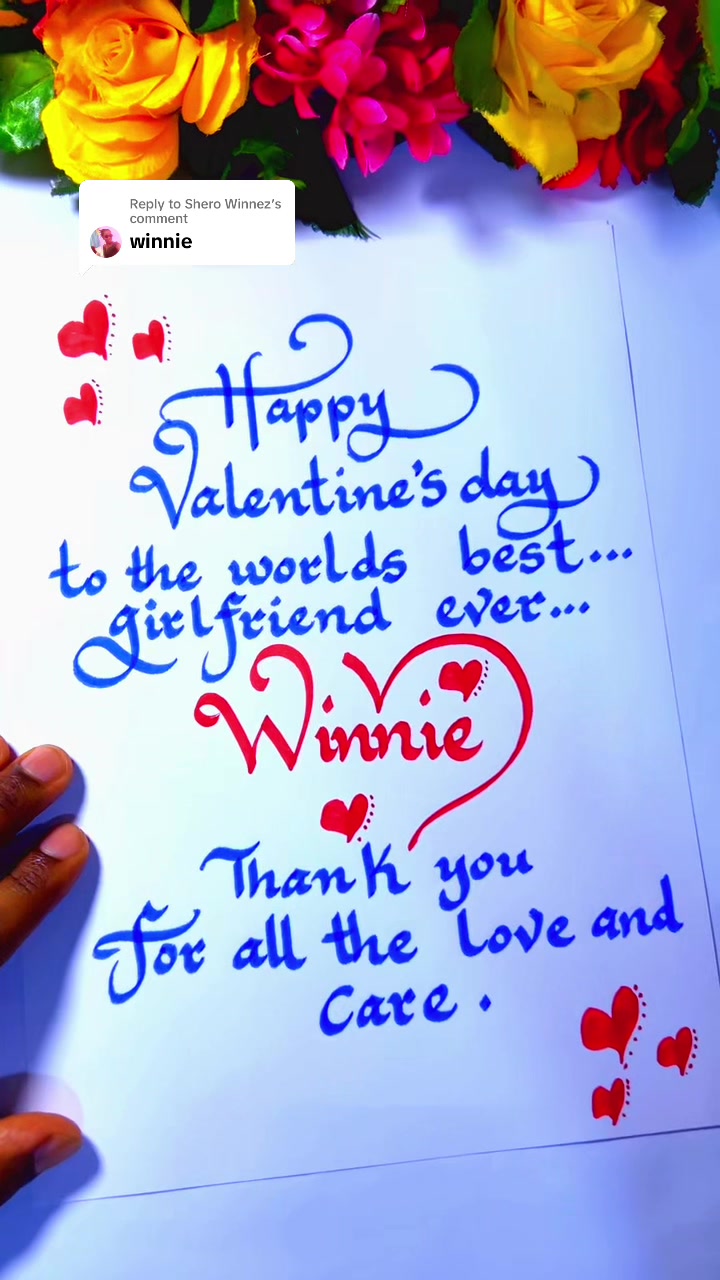 Reply to Shero Winnez's
comment
winnie
Happy
Valentine's day
to the worlds best...
girlfriend ever...
Winnie
Thank you
for all the love and
care.